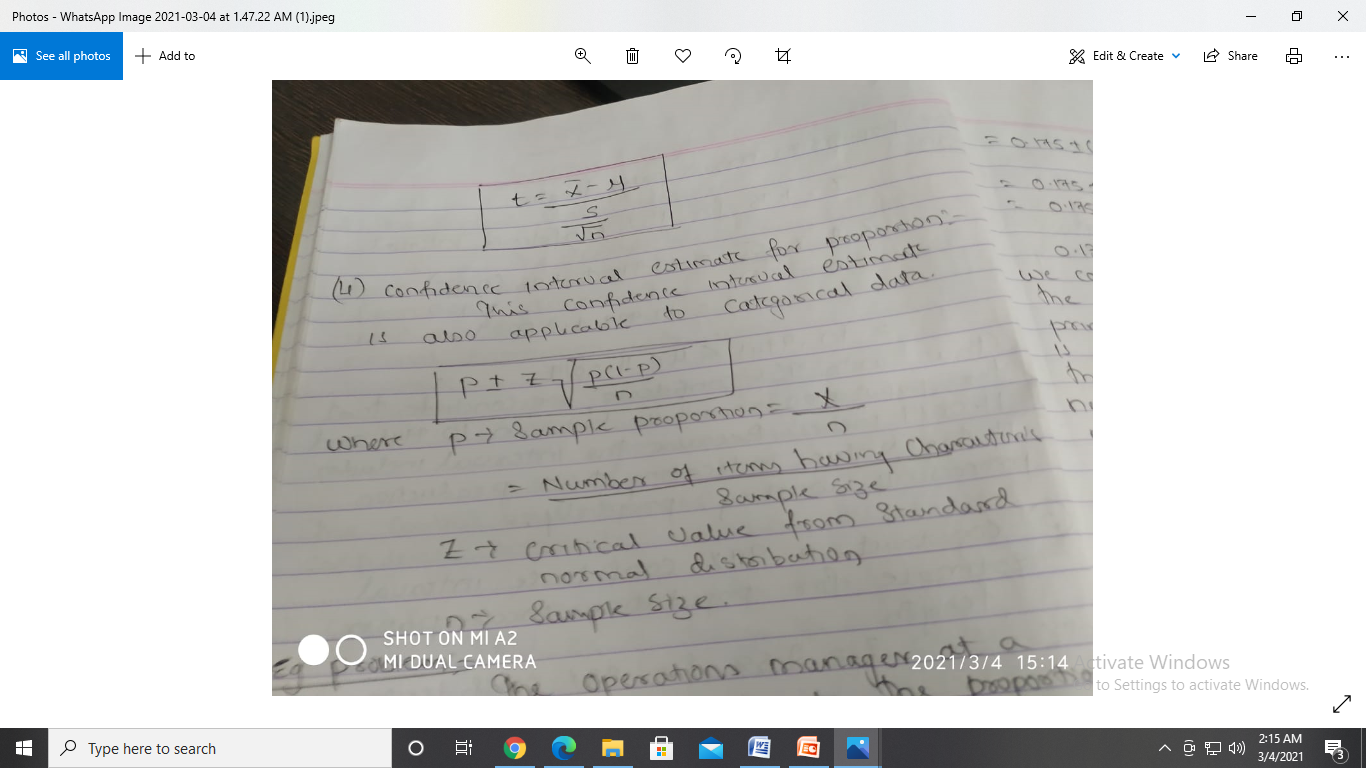 Photos - WhatsApp Image 2021-03-04 at 1.47.22 AM (1).jpeg
See all photos
Add to
Edit & Create
Share
t = x̄ - μ
s
√n
(4) confidence interval estimate for proportion:-
This confidence interval estimate
is also applicable to categorical data.
p ± z √ p(1-p)
n
where p → Sample proportion = X
n
= Number of items having Characteris
Sample Size
Z → critical value from Standard
normal distribution
n → Sample Size.
Eg
The operations manager at a
the proportio
= 0.175 ± (
= 0.175
= 0.175
0.17
we co
the
is
SHOT ON MI A2
MI DUAL CAMERA
2021/3/4 15:14
Activate Windows
to Settings to activate Windows.
Type here to search
2:15 AM
3/4/2021
3